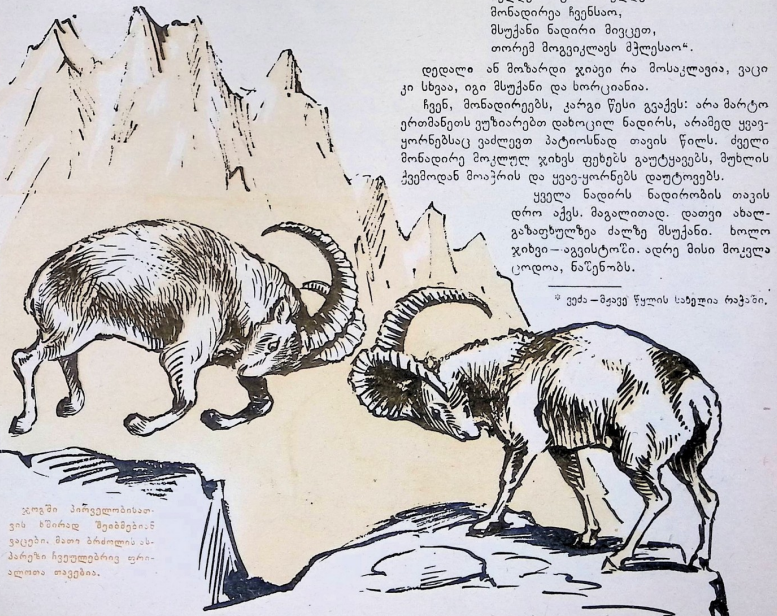 მონადირეა ჩვენსაო,
მსუქანი ნადირი მივცეთ,
თორემ მოგვიკლავს მჭლესაო“.
დედალი ან მოზარდი ჯიავი რა მოსაკლავია, ვაცი
კი სხვაა, იგი მსუქანი და ხორციანია.
ჩვენ, მონადირეებს, კარგი წესი გვაქვს: არა მარტო
ერთმანეთს ვუზიარებთ დახოცილ ნადირს, არამედ ყვავ-
ყორნებსაც ვაძლევთ პატიოსნად თავის წილს. ძველი
მონადირე მოკლულ ჯიხვს ფეხებს გაუტყავებს, მუხლის
ქვემოდან მოაჭრის და ყვავ-ყორნებს დაუტოვებს.
ყველა ნადირს ნადირობის თავის
დრო აქვს. მაგალითად. დათვი ახალ-
გაზაფხულზეა ძალზე მსუქანი. ხოლო
ჯიხვი—აგვისტოში. ადრე მისი მოკვლა
ცოდოა, ნაშენობს.
* ვეძა—მჟავე წყლის სახელია რაჭაში.
ჯოგში პირველობისათ-
ვის ხშირად შეიბმებიან
ვაცები. მათი ბრძოლის ას-
პარეზი ჩვეულებრივ ფრი-
ალოთა თავებია.